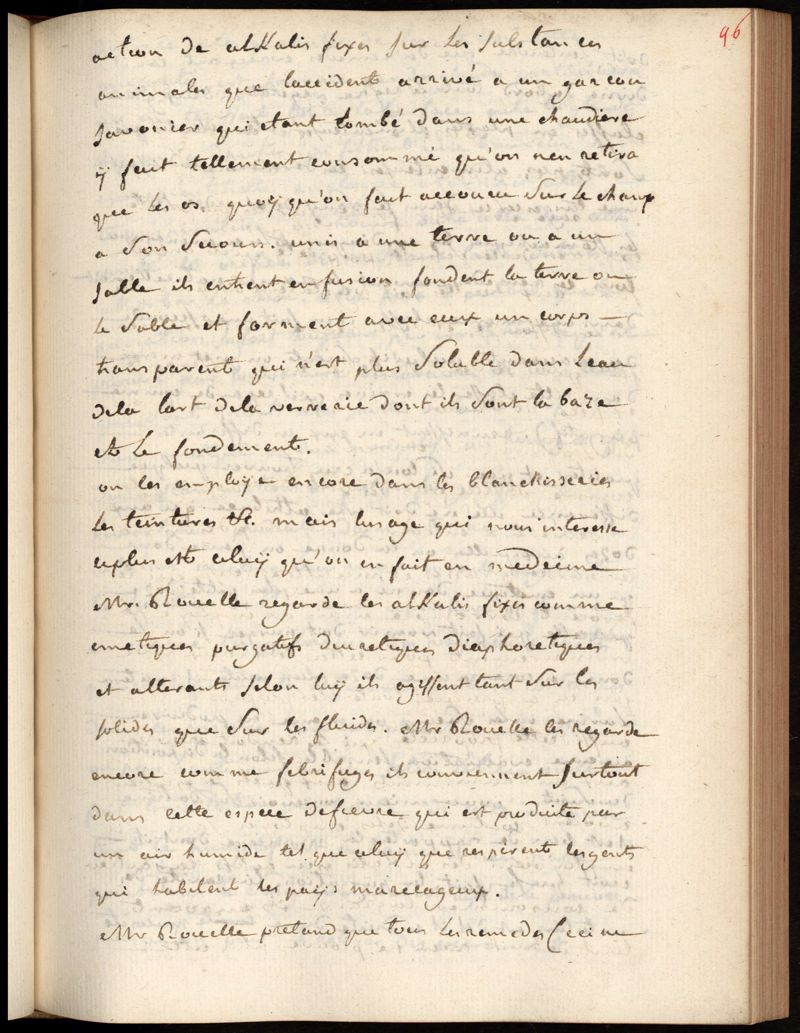 96
action de alKalis fixes sur les substances
animales que laccident arrivé a un garcon
savonier qui etant tombé dans une chaudiere
ÿ fut tellement consommé qu'on nen retira
que les os. quoÿ qu'on fut accouru sur le champ
a son secours. unis a une terre ou a un
sable ils entrent en fusion fondent la terre ou
le sable et forment avec eux un corps —
transparent qui n'est plus soluble dans leau
dela lart dela verrerie dont ils sont la baze
et le fondement.
on les employe encore dans les blanchisseries
les teintures &c. mais lusage qui nous interesse
le plus est celuÿ qu'on en fait en medecine
Mr. Rouelle regarde les alKalis fixes comme
emetiques purgatifs diuretiques diaphoretiques
et alterants selon luÿ ils agissent tant sur les
solides que sur les fluides. Mr Rouelle les regarde
encore comme febrifuges ils conviennent surtout
dans cette espece defievre qui est produite par
un air humide tel que celuÿ que respirent les gents
qui habitent les paÿs marecageux.
Mr Rouelle pretend que tous les remedes